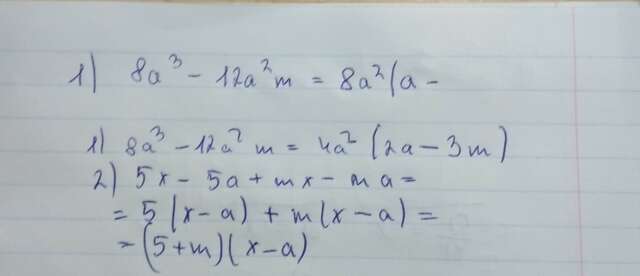 1) 8a³ - 12a²m = 8a²(a -
1) 8a³ - 12a² m = 4a² (2a - 3m)
2) 5x - 5a + mx - ma =
= 5 (x - a) + m (x - a) =
= (5 + m)(x - a)